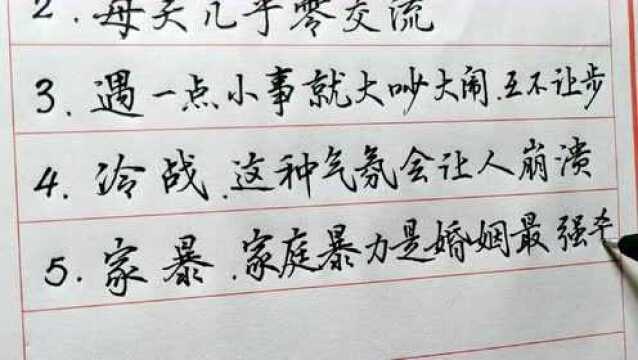 2.每天几乎零交流
3.遇一点小事就大吵大闹.互不让步
4.冷战.这种气氛会让人崩溃
5.家暴.家庭暴力是婚姻最强杀